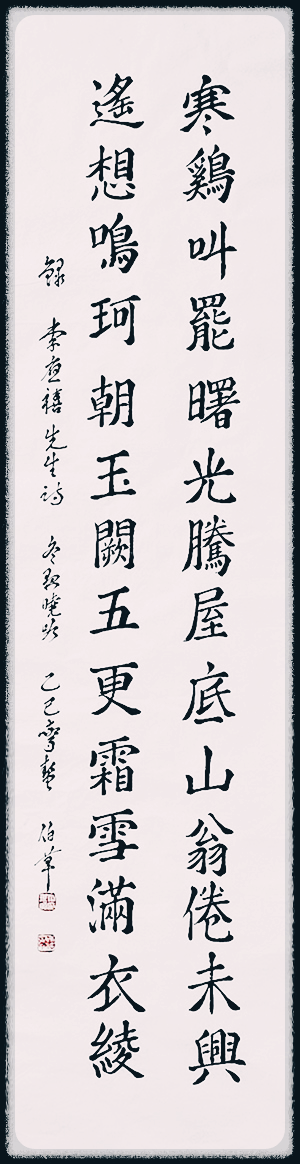 寒鷄叫罷曙光騰屋底山翁倦未興
遙想鳴珂朝玉闕五更霜雪滿衣綾
錄 李應禧先生詩 冬臥曉吟 乙巳驚蟄 伯